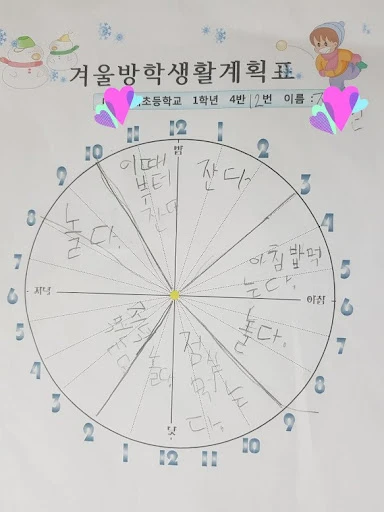 겨울방학생활계획표
초등학교 1학년 4반 12번 이름 :
11 12 1
10 밤 2
9 3
8 4
7 5
6 저녁 아침 6
5 7
4 8
3 9
2 낮 10
1 12 11
이때
부터
잔다
잔다.
아침 밥 먹
는다.
놀다.
점심
먹는
다.
놀다
놀다.